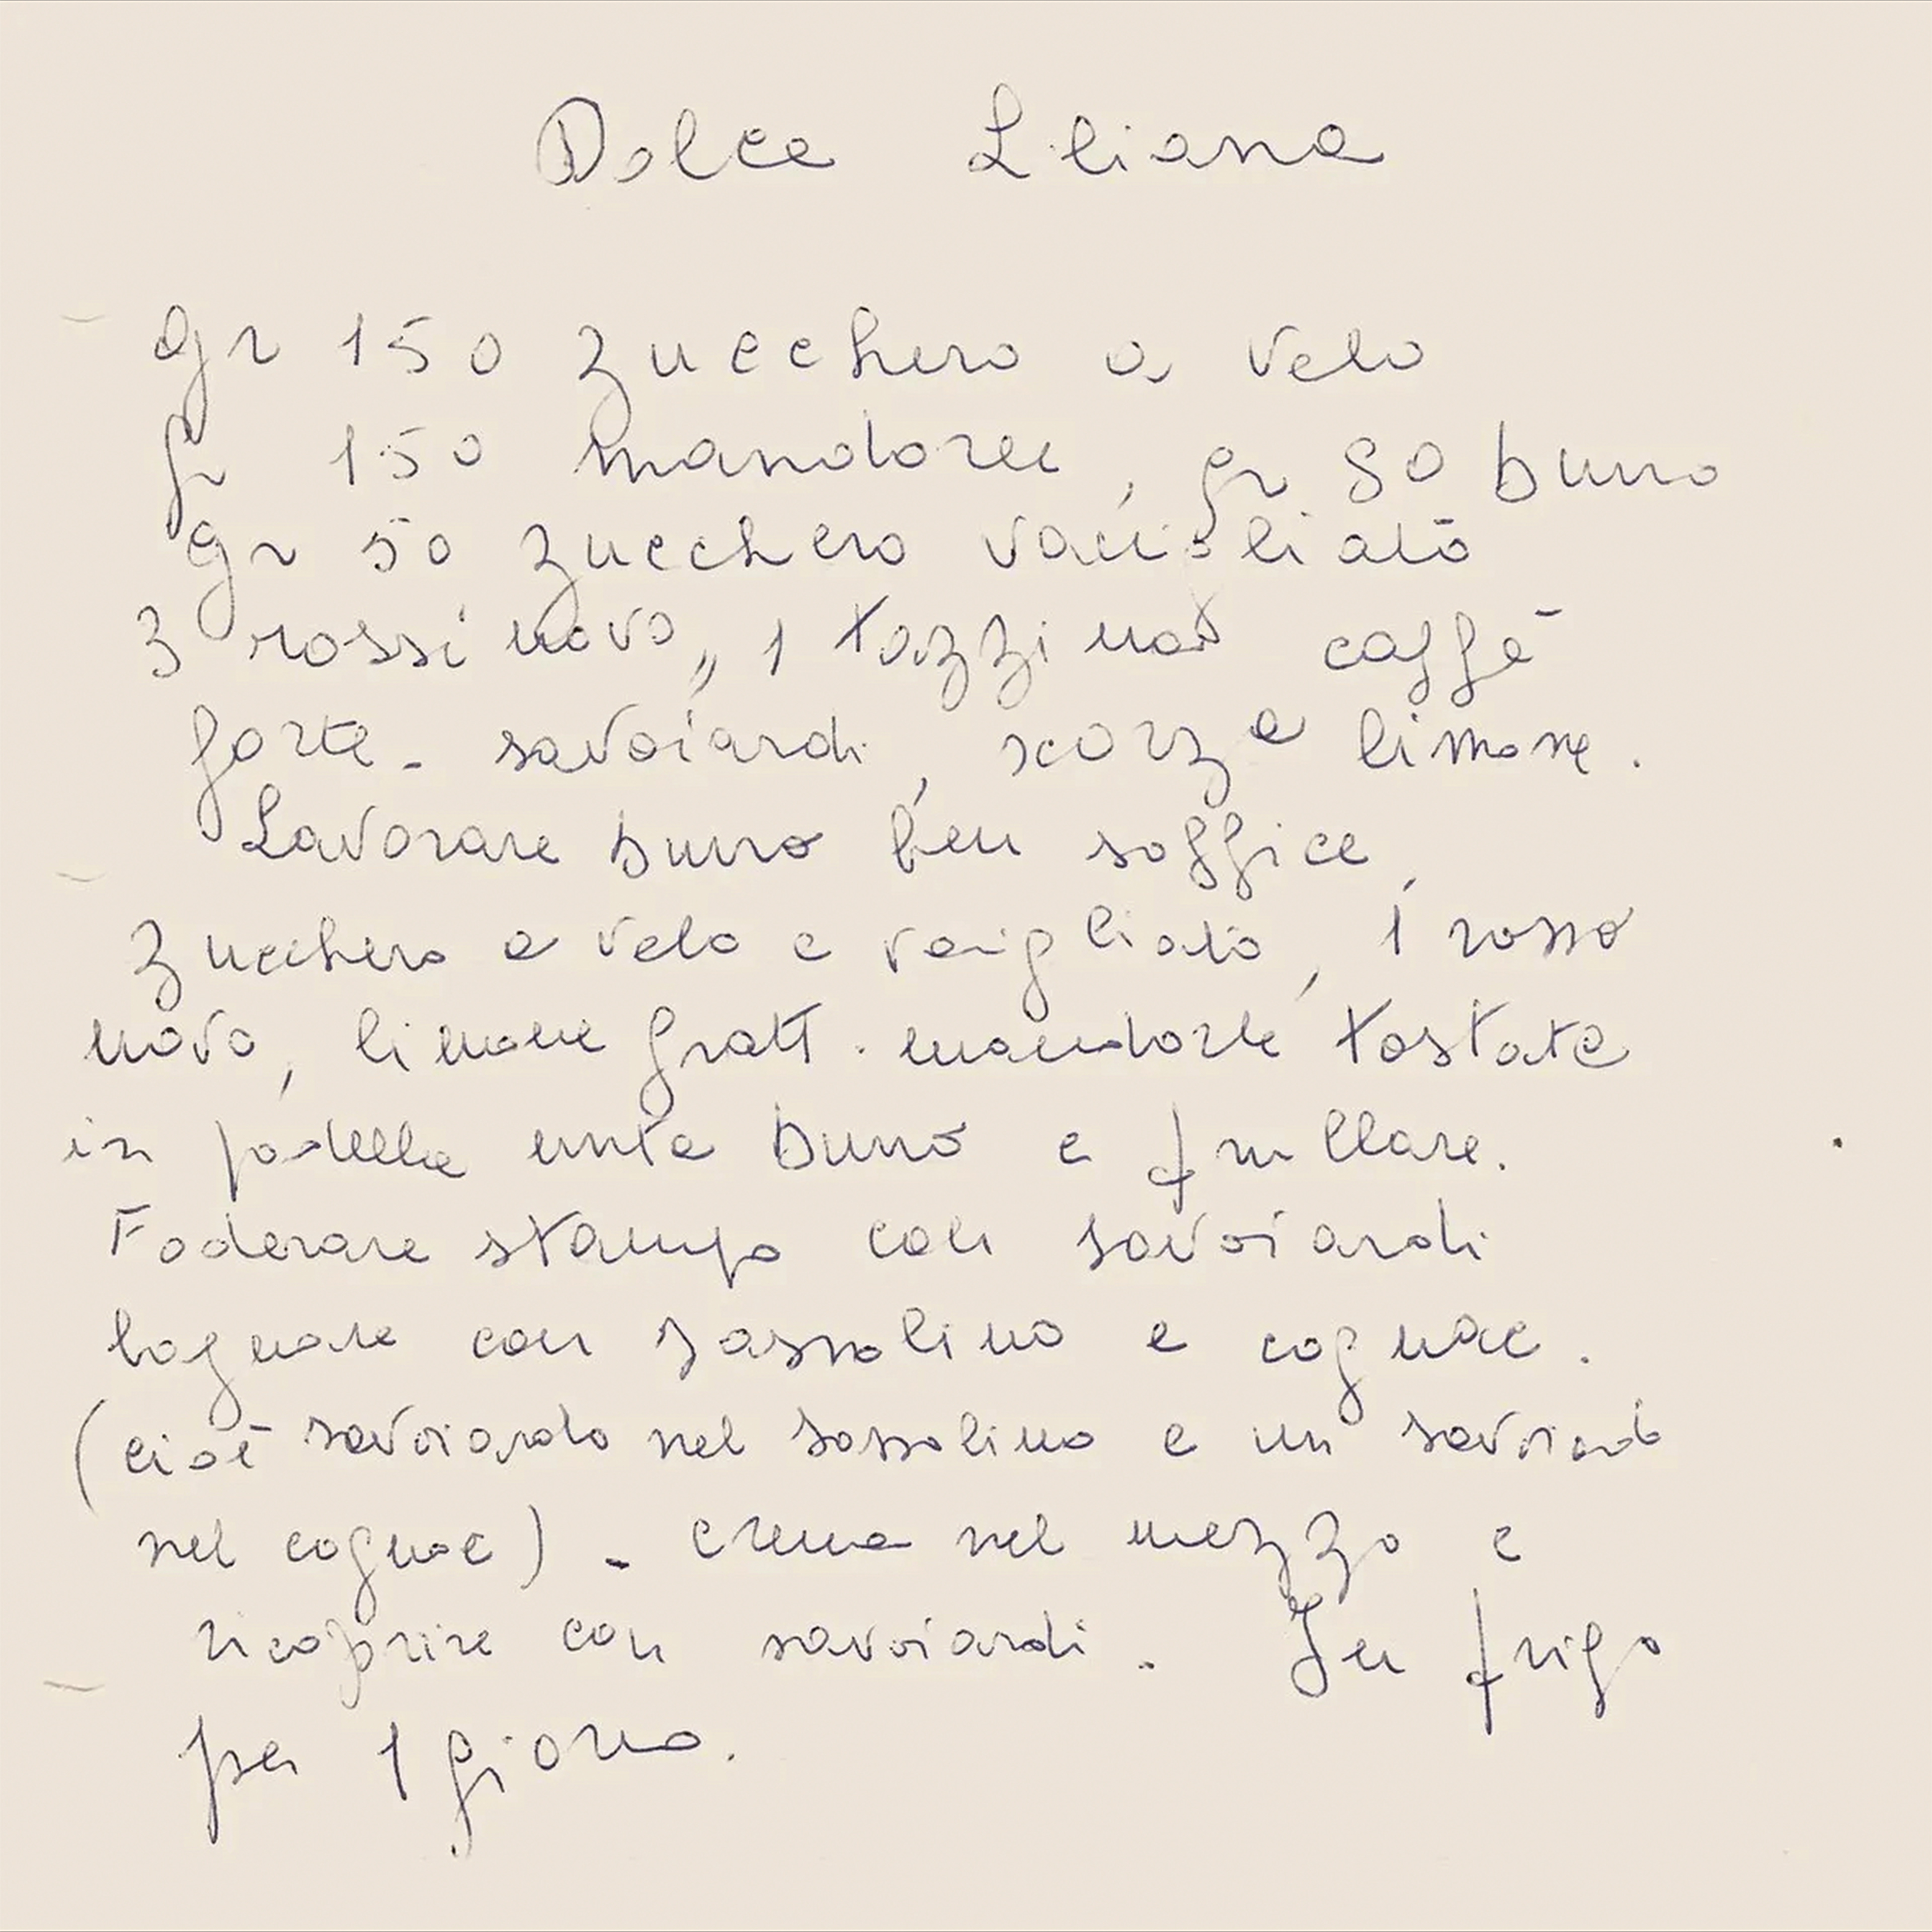 Dolce Liliana
gr 150 zucchero a velo
gr 150 mandorle, gr 80 burro
gr 50 zucchero vanigliato
3 rossi uovo, 1 tazzina caffè
forte - savoiardi, scorza limone.
Lavorare burro ben soffice,
zucchero a velo e vanigliato, 1 rosso
uovo, limone gratt. mandorle tostate
in padella unta burro e frullare.
Foderare stampo con savoiardi
bagnare con Sassolino e cognac.
(cioè savoiardo nel Sassolino e un savoiardo
nel cognac) - crema nel mezzo e
ricoprire con savoiardi. In frigo
per 1 giorno.